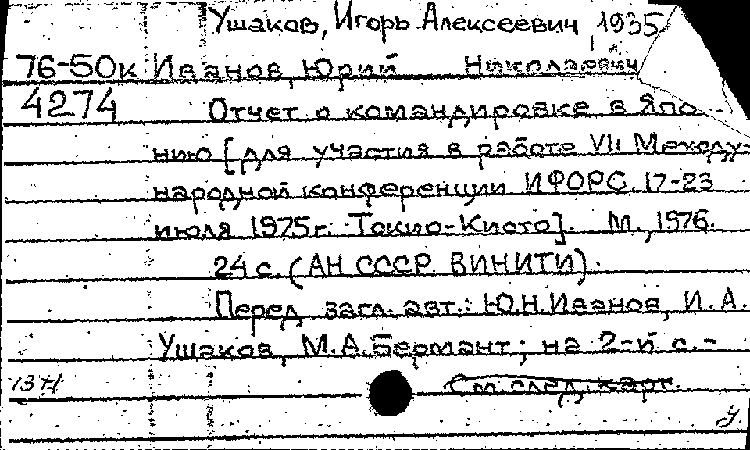 Ушаков, Игорь Алексеевич, 1935
76-50к Иванов, Юрий Николаевич
4274 Отчет о командировке в Япо-
нию [для участия в работе VII Между-
народной конференции ИФОРС. 17-23
июля 1975г. Токио-Киото]. М., 1976.
24 с. (АН СССР. ВИНИТИ).
Перед загл. авт.: Ю.Н.Иванов, И.А.
Ушаков, М.А.Бермант; на 2-й с.-
См. след. карт.
У